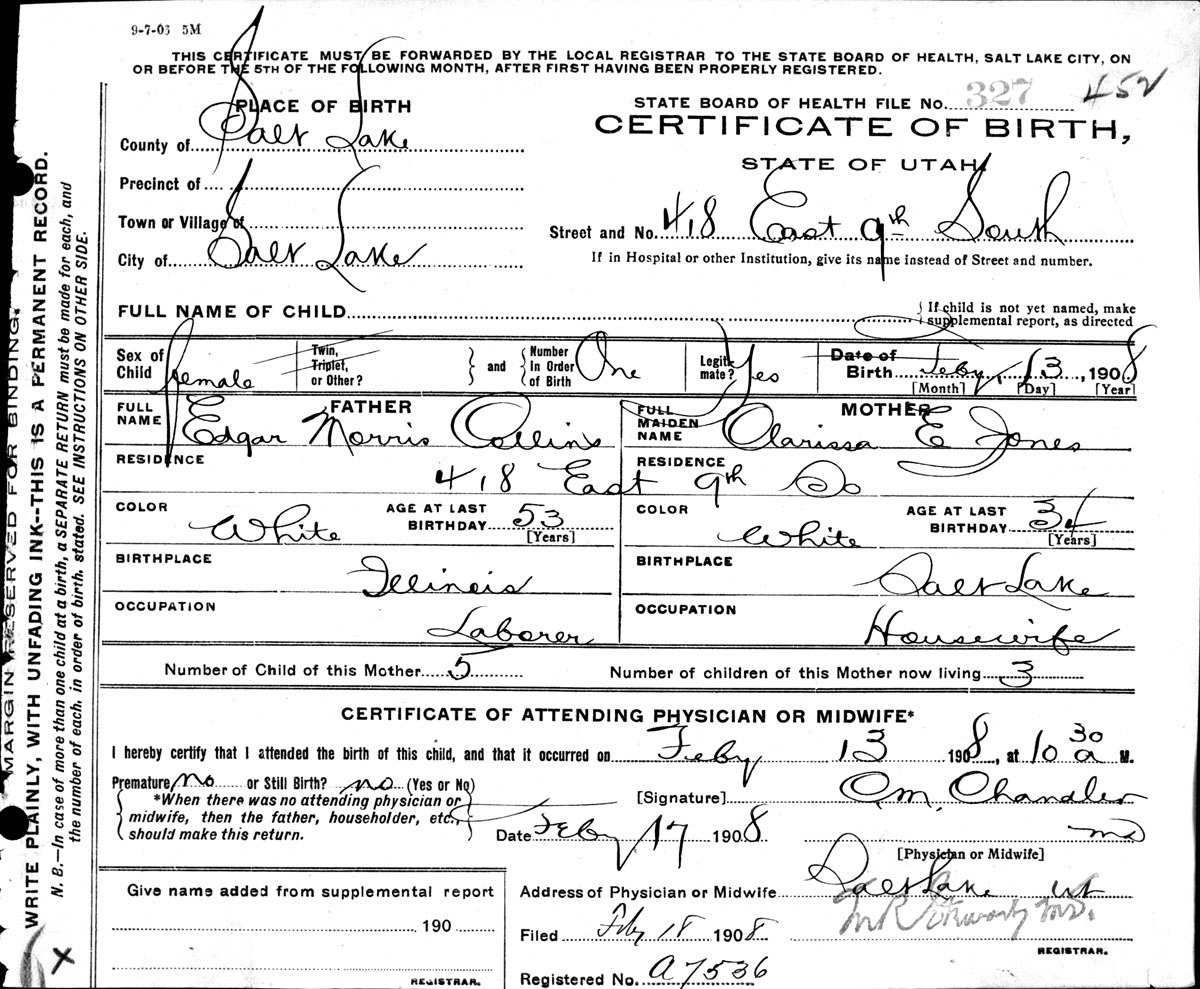 9-7-06 5M
THIS CERTIFICATE MUST BE FORWARDED BY THE LOCAL REGISTRAR TO THE STATE BOARD OF HEALTH, SALT LAKE CITY, ON
OR BEFORE THE 5TH OF THE FOLLOWING MONTH, AFTER FIRST HAVING BEEN PROPERLY REGISTERED.
PLACE OF BIRTH
County of Salt Lake
Precinct of
Town or Village of
City of Salt Lake
STATE BOARD OF HEALTH FILE No. 327 452
CERTIFICATE OF BIRTH,
STATE OF UTAH
Street and No. 418 East 9th South
If in Hospital or other Institution, give its name instead of Street and number.
FULL NAME OF CHILD
If child is not yet named, make
supplemental report, as directed
Sex of Child female
Twin, Triplet, or Other?
and
Number in Order of Birth One
Legitimate? Yes
Date of Birth Feby 13, 1908
[Month] [Day] [Year]
FATHER
FULL NAME Edgar Morris Collins
MOTHER
FULL MAIDEN NAME Clarissa E Jones
RESIDENCE
RESIDENCE
418 East 9th So
COLOR White
AGE AT LAST BIRTHDAY 53
[Years]
COLOR White
AGE AT LAST BIRTHDAY 34
[Years]
BIRTHPLACE
Illinois
BIRTHPLACE
Salt Lake
OCCUPATION
Laborer
OCCUPATION
Housewife
Number of Child of this Mother 5
Number of children of this Mother now living 3
CERTIFICATE OF ATTENDING PHYSICIAN OR MIDWIFE*
I hereby certify that I attended the birth of this child, and that it occurred on Feby 13 1908, at 10 30 a M.
Premature no or Still Birth? no (Yes or No)
*When there was no attending physician or
midwife, then the father, householder, etc.,
should make this return.
[Signature] C.M. Chandler
MD
Date Feby 17 1908
[Physician or Midwife]
Give name added from supplemental report
190
REGISTRAR.
Address of Physician or Midwife Salt Lake Ut
Filed Feby 18 1908
M.D.
REGISTRAR.
Registered No. A7536
MARGIN RESERVED FOR BINDING.
WRITE PLAINLY, WITH UNFADING INK--THIS IS A PERMANENT RECORD.
N. B.—In case of more than one child at a birth, a SEPARATE RETURN must be made for each, and
the number of each. in order of birth. stated. SEE INSTRUCTIONS ON OTHER SIDE.
X